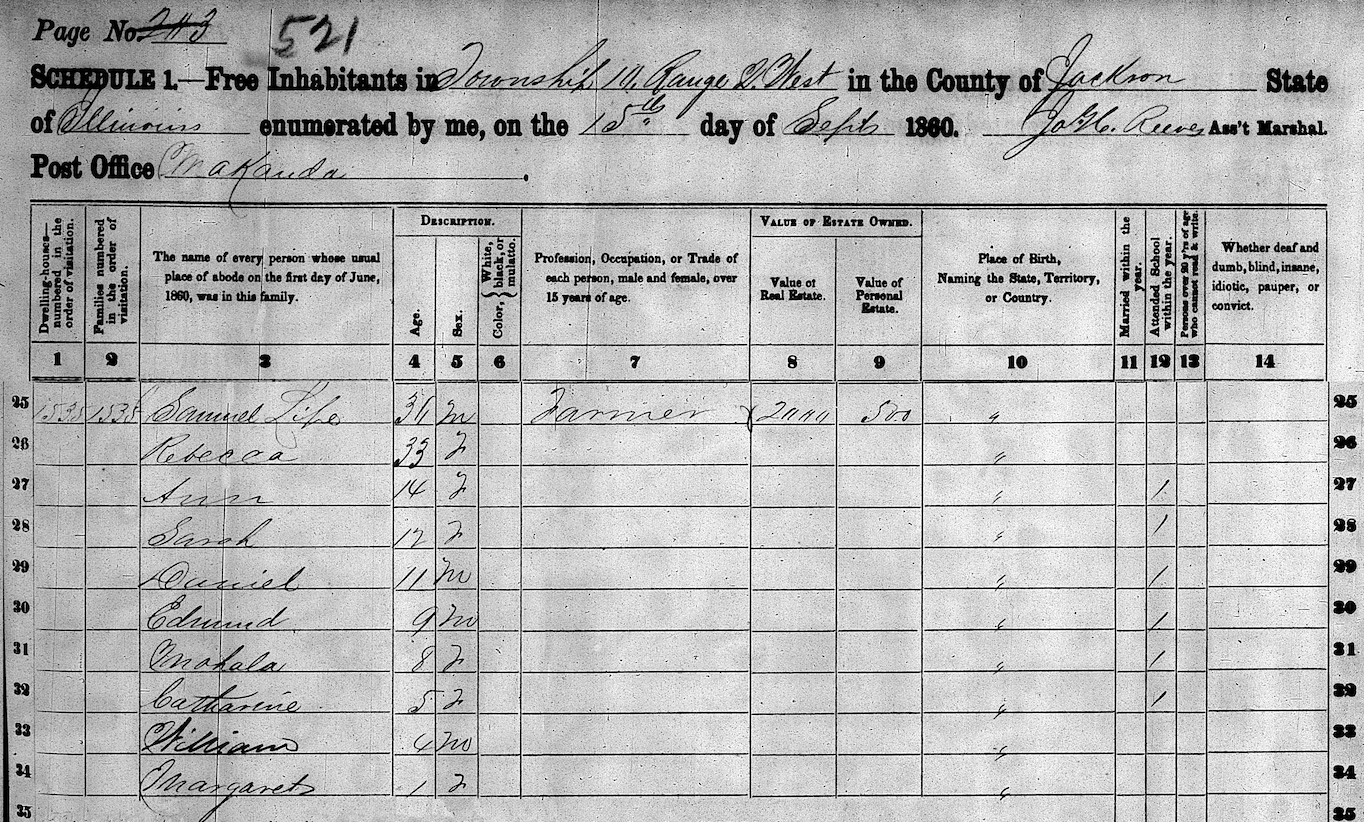 Page No. 243 521
SCHEDULE 1.—Free Inhabitants in Township 10 Range 2 West in the County of Jackson State
of Illinoins enumerated by me, on the 15th day of Sept 1860. Reeves Ass't Marshal.
Post Office Makanda.
Dwelling-houses—numbered in the order of visitation.
Families numbered in the order of visitation.
The name of every person whose usual
place of abode on the first day of June,
1860, was in this family.
DESCRIPTION.
Age.
Sex.
Color, { White, black, or mulatto.
Profession, Occupation, or Trade of
each person, male and female, over
15 years of age.
VALUE OF ESTATE OWNED.
Value of
Real Estate.
Value of
Personal
Estate.
Place of Birth,
Naming the State, Territory,
or Country.
Married within the year.
Attended School within the year.
Persons over 20 y'rs of age who cannot read & write.
Whether deaf and
dumb, blind, insane,
idiotic, pauper, or
convict.
1 2 3 4 5 6 7 8 9 10 11 12 13 14
25 Samuel Lipe m Farmer 2000 500 " 25
26 Rebecca 33 f " 26
27 Ann 14 f " 1 27
28 Sarah 12 f " 1 28
29 Daniel 11 m " 1 29
30 Edmund 9 m " 1 30
31 Mahala 8 f " 1 31
32 Catharine 5 f " 1 32
33 William 4 m " 33
34 Margaret 1 f " 34
35 35